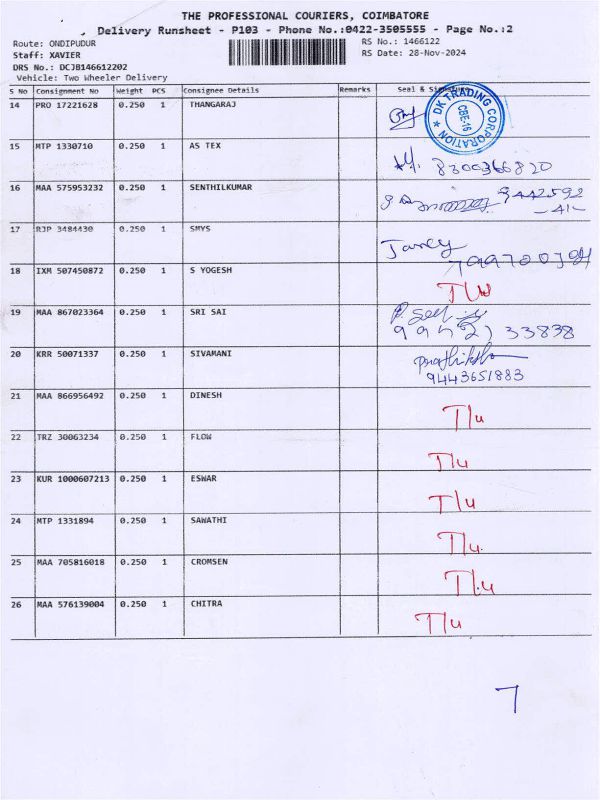 THE PROFESSIONAL COURIERS, COIMBATORE
Delivery Runsheet - P103 - Phone No.:0422-3505555 - Page No.:2
Route: ONDIPUDUR RS No.: 1466122
Staff: XAVIER RS Date: 28-Nov-2024
DRS No.: DCJB146612202
Vehicle: Two Wheeler Delivery
S No Consignment No Weight PCS Consignee Details Remarks Seal & Signature
14 PRO 17221628 0.250 1 THANGARAJ
DK TRADING CORPORATION
CBE-16
15 MTP 1330710 0.250 1 AS TEX
8300366820
16 MAA 575953232 0.250 1 SENTHILKUMAR
9442592
-41-
17 RJP 3484430 0.250 1 SMYS
Jancy
18 IXM 507450872 0.250 1 S YOGESH
19 MAA 867023364 0.250 1 SRI SAI
33838
20 KRR 50071337 0.250 1 SIVAMANI
9443651883
21 MAA 866956492 0.250 1 DINESH
T/u
22 TRZ 30063234 0.250 1 FLOW
T/u
23 KUR 1000607213 0.250 1 ESWAR
T/u
24 MTP 1331894 0.250 1 SAWATHI
T/u.
25 MAA 705816018 0.250 1 CROMSEN
T/u
26 MAA 576139004 0.250 1 CHITRA
T/u
7